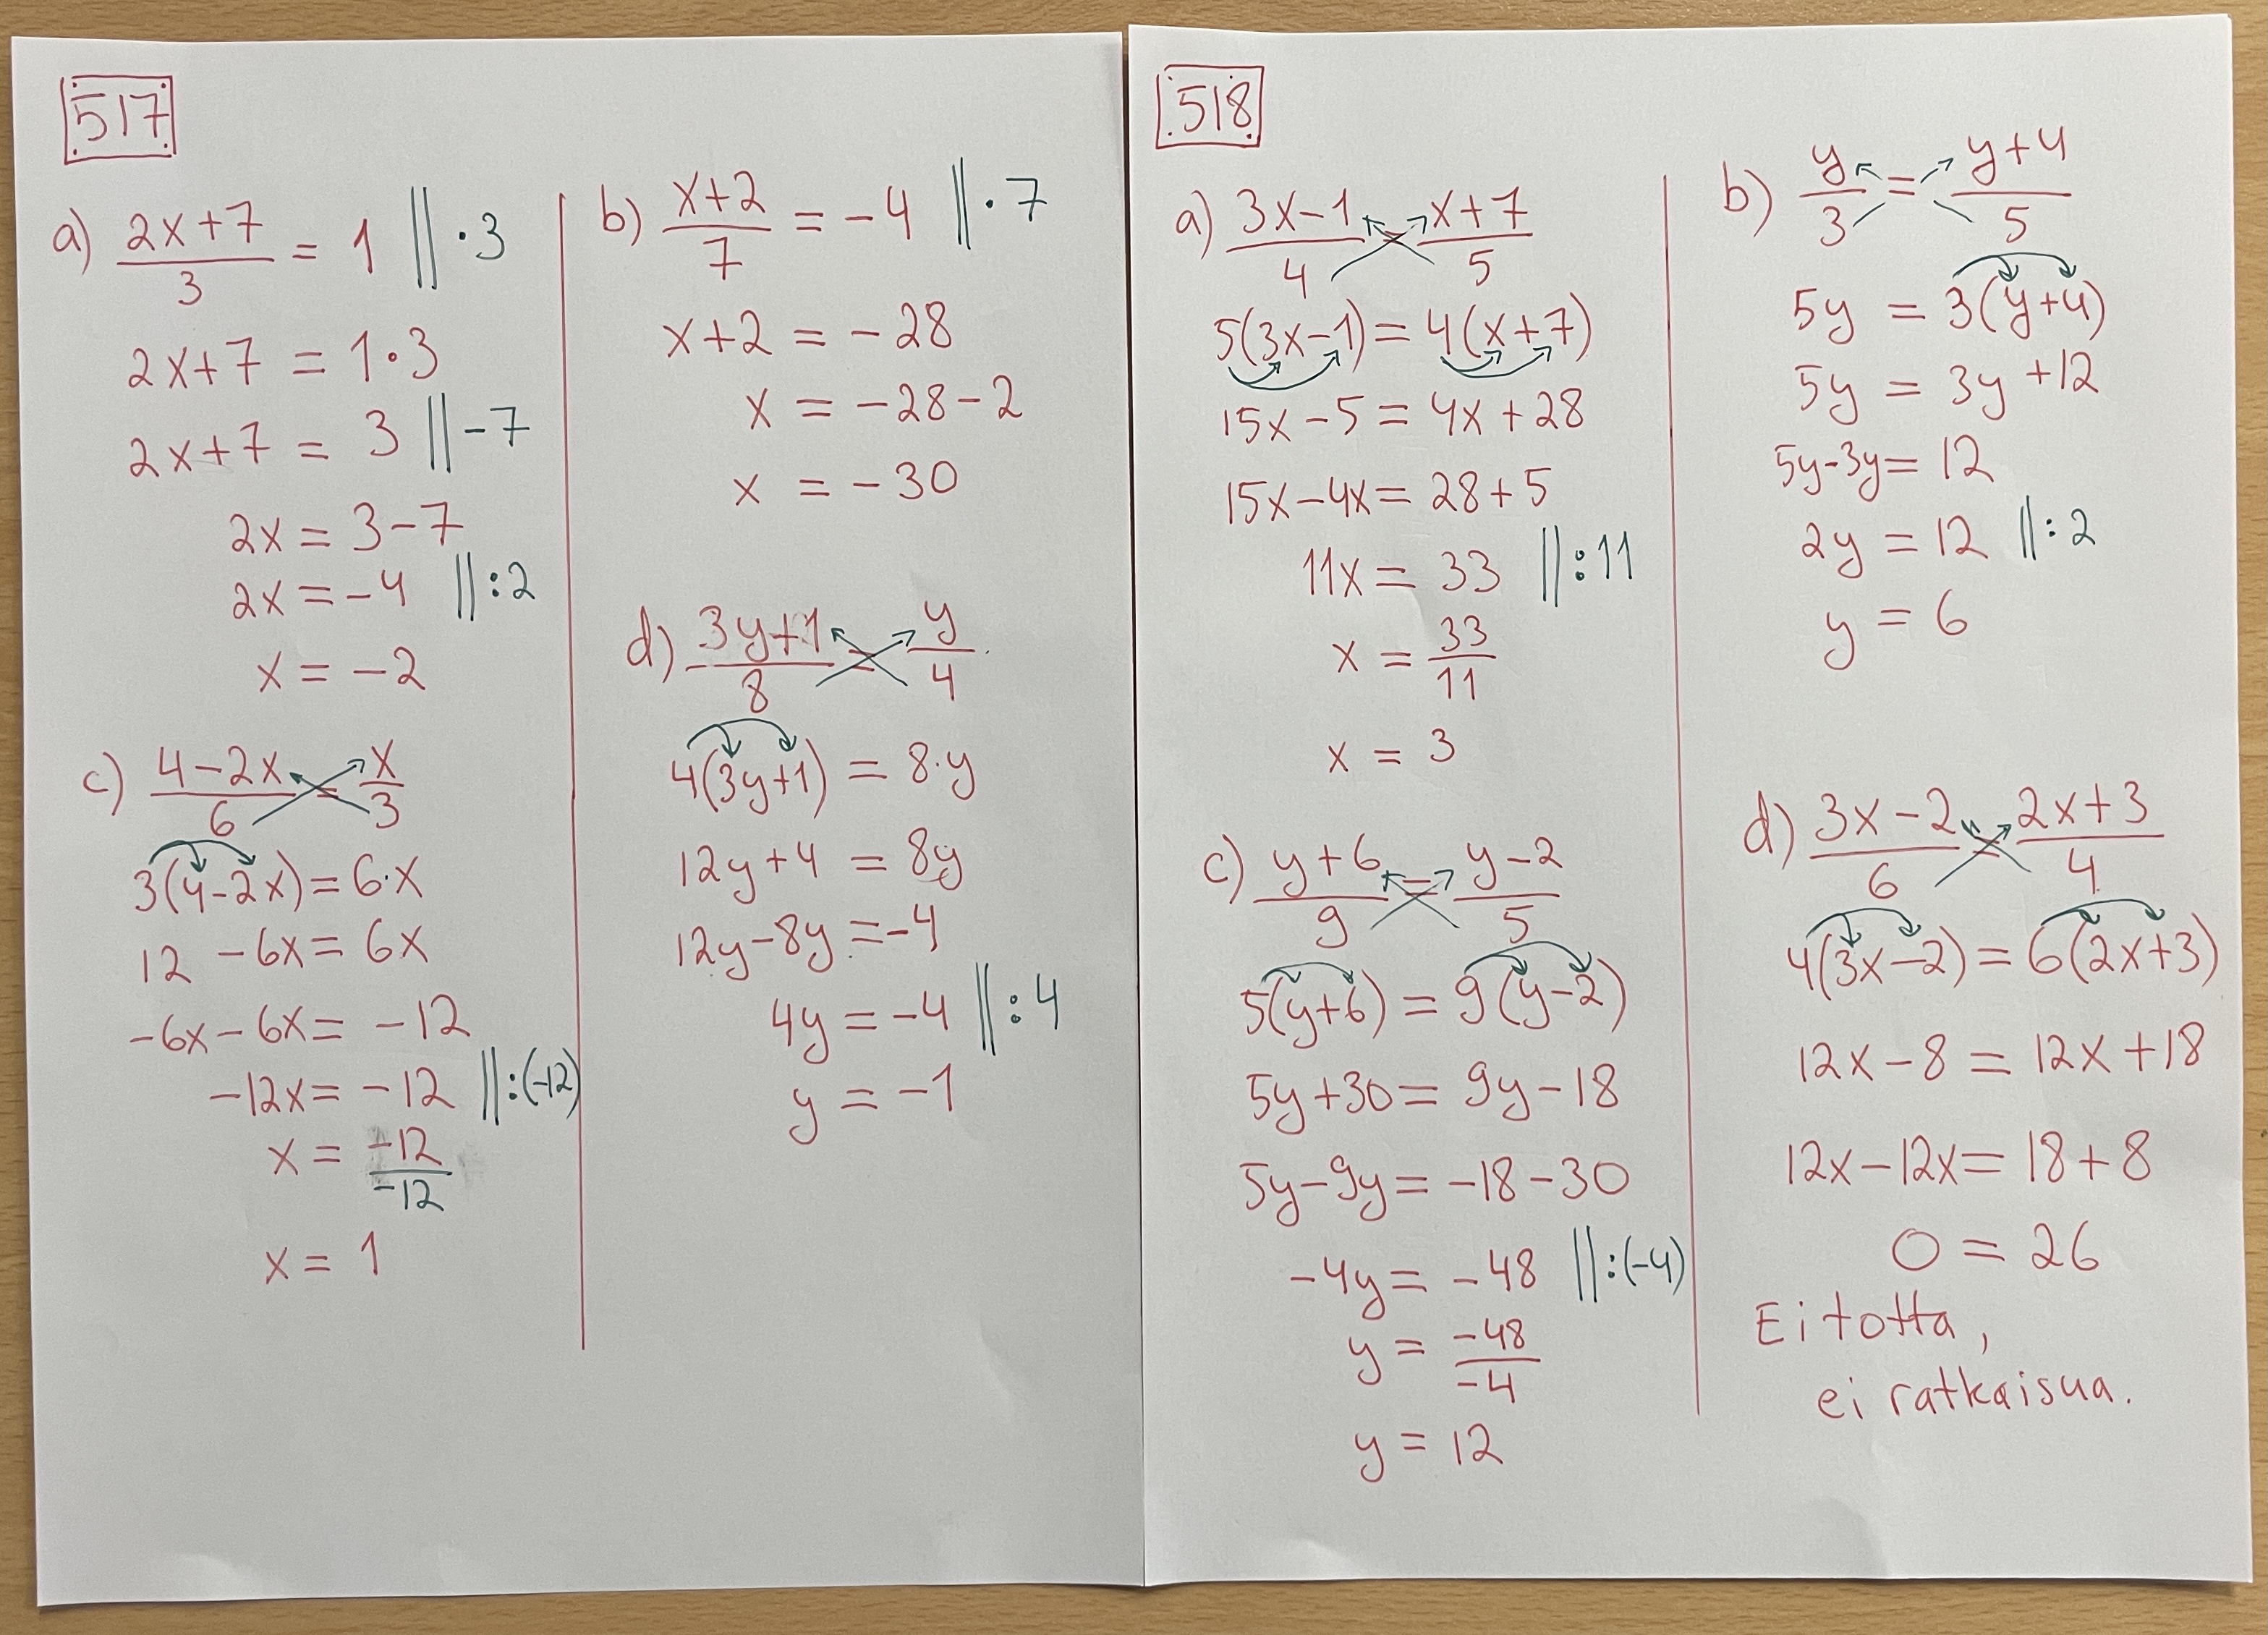 517
a) (2x+7)/3 = 1 ||·3
2x+7 = 1·3
2x+7 = 3 ||-7
2x = 3-7
2x = -4 ||:2
x = -2
b) (x+2)/7 = -4 ||·7
x+2 = -28
x = -28-2
x = -30
c) (4-2x)/6 = x/3
3(4-2x) = 6·x
12 -6x = 6x
-6x-6x = -12
-12x = -12 ||:(-12)
x = -12/-12
x = 1
d) (3y+1)/8 = y/4
4(3y+1) = 8·y
12y+4 = 8y
12y-8y = -4
4y = -4 ||:4
y = -1
518
a) (3x-1)/4 = (x+7)/5
5(3x-1) = 4(x+7)
15x-5 = 4x+28
15x-4x = 28+5
11x = 33 ||:11
x = 33/11
x = 3
b) y/3 = (y+4)/5
5y = 3(y+4)
5y = 3y+12
5y-3y = 12
2y = 12 ||:2
y = 6
c) (y+6)/9 = (y-2)/5
5(y+6) = 9(y-2)
5y+30 = 9y-18
5y-9y = -18-30
-4y = -48 ||:(-4)
y = -48/-4
y = 12
d) (3x-2)/6 = (2x+3)/4
4(3x-2) = 6(2x+3)
12x-8 = 12x+18
12x-12x = 18+8
0 = 26
Ei totta,
ei ratkaisua.